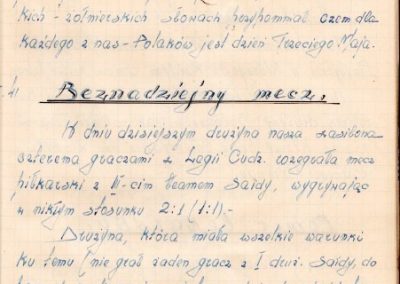 kich - żołnierskich słowach przypomniał, czem dla
każdego z nas - Polaków, jest dzień Trzeciego Maja.
Beznadziejny mecz.
W dniu dzisiejszym drużyna nasza zasilona
czterema graczami z Legii Cudz. rozegrała mecz
piłkarski z II-cim teamem Saidy, wygrywając
w nikłym stosunku 2:1 (1:1).-
Drużyna, która miała wszelkie warunki
ku temu (nie grał żaden gracz z I druż. Saidy, do